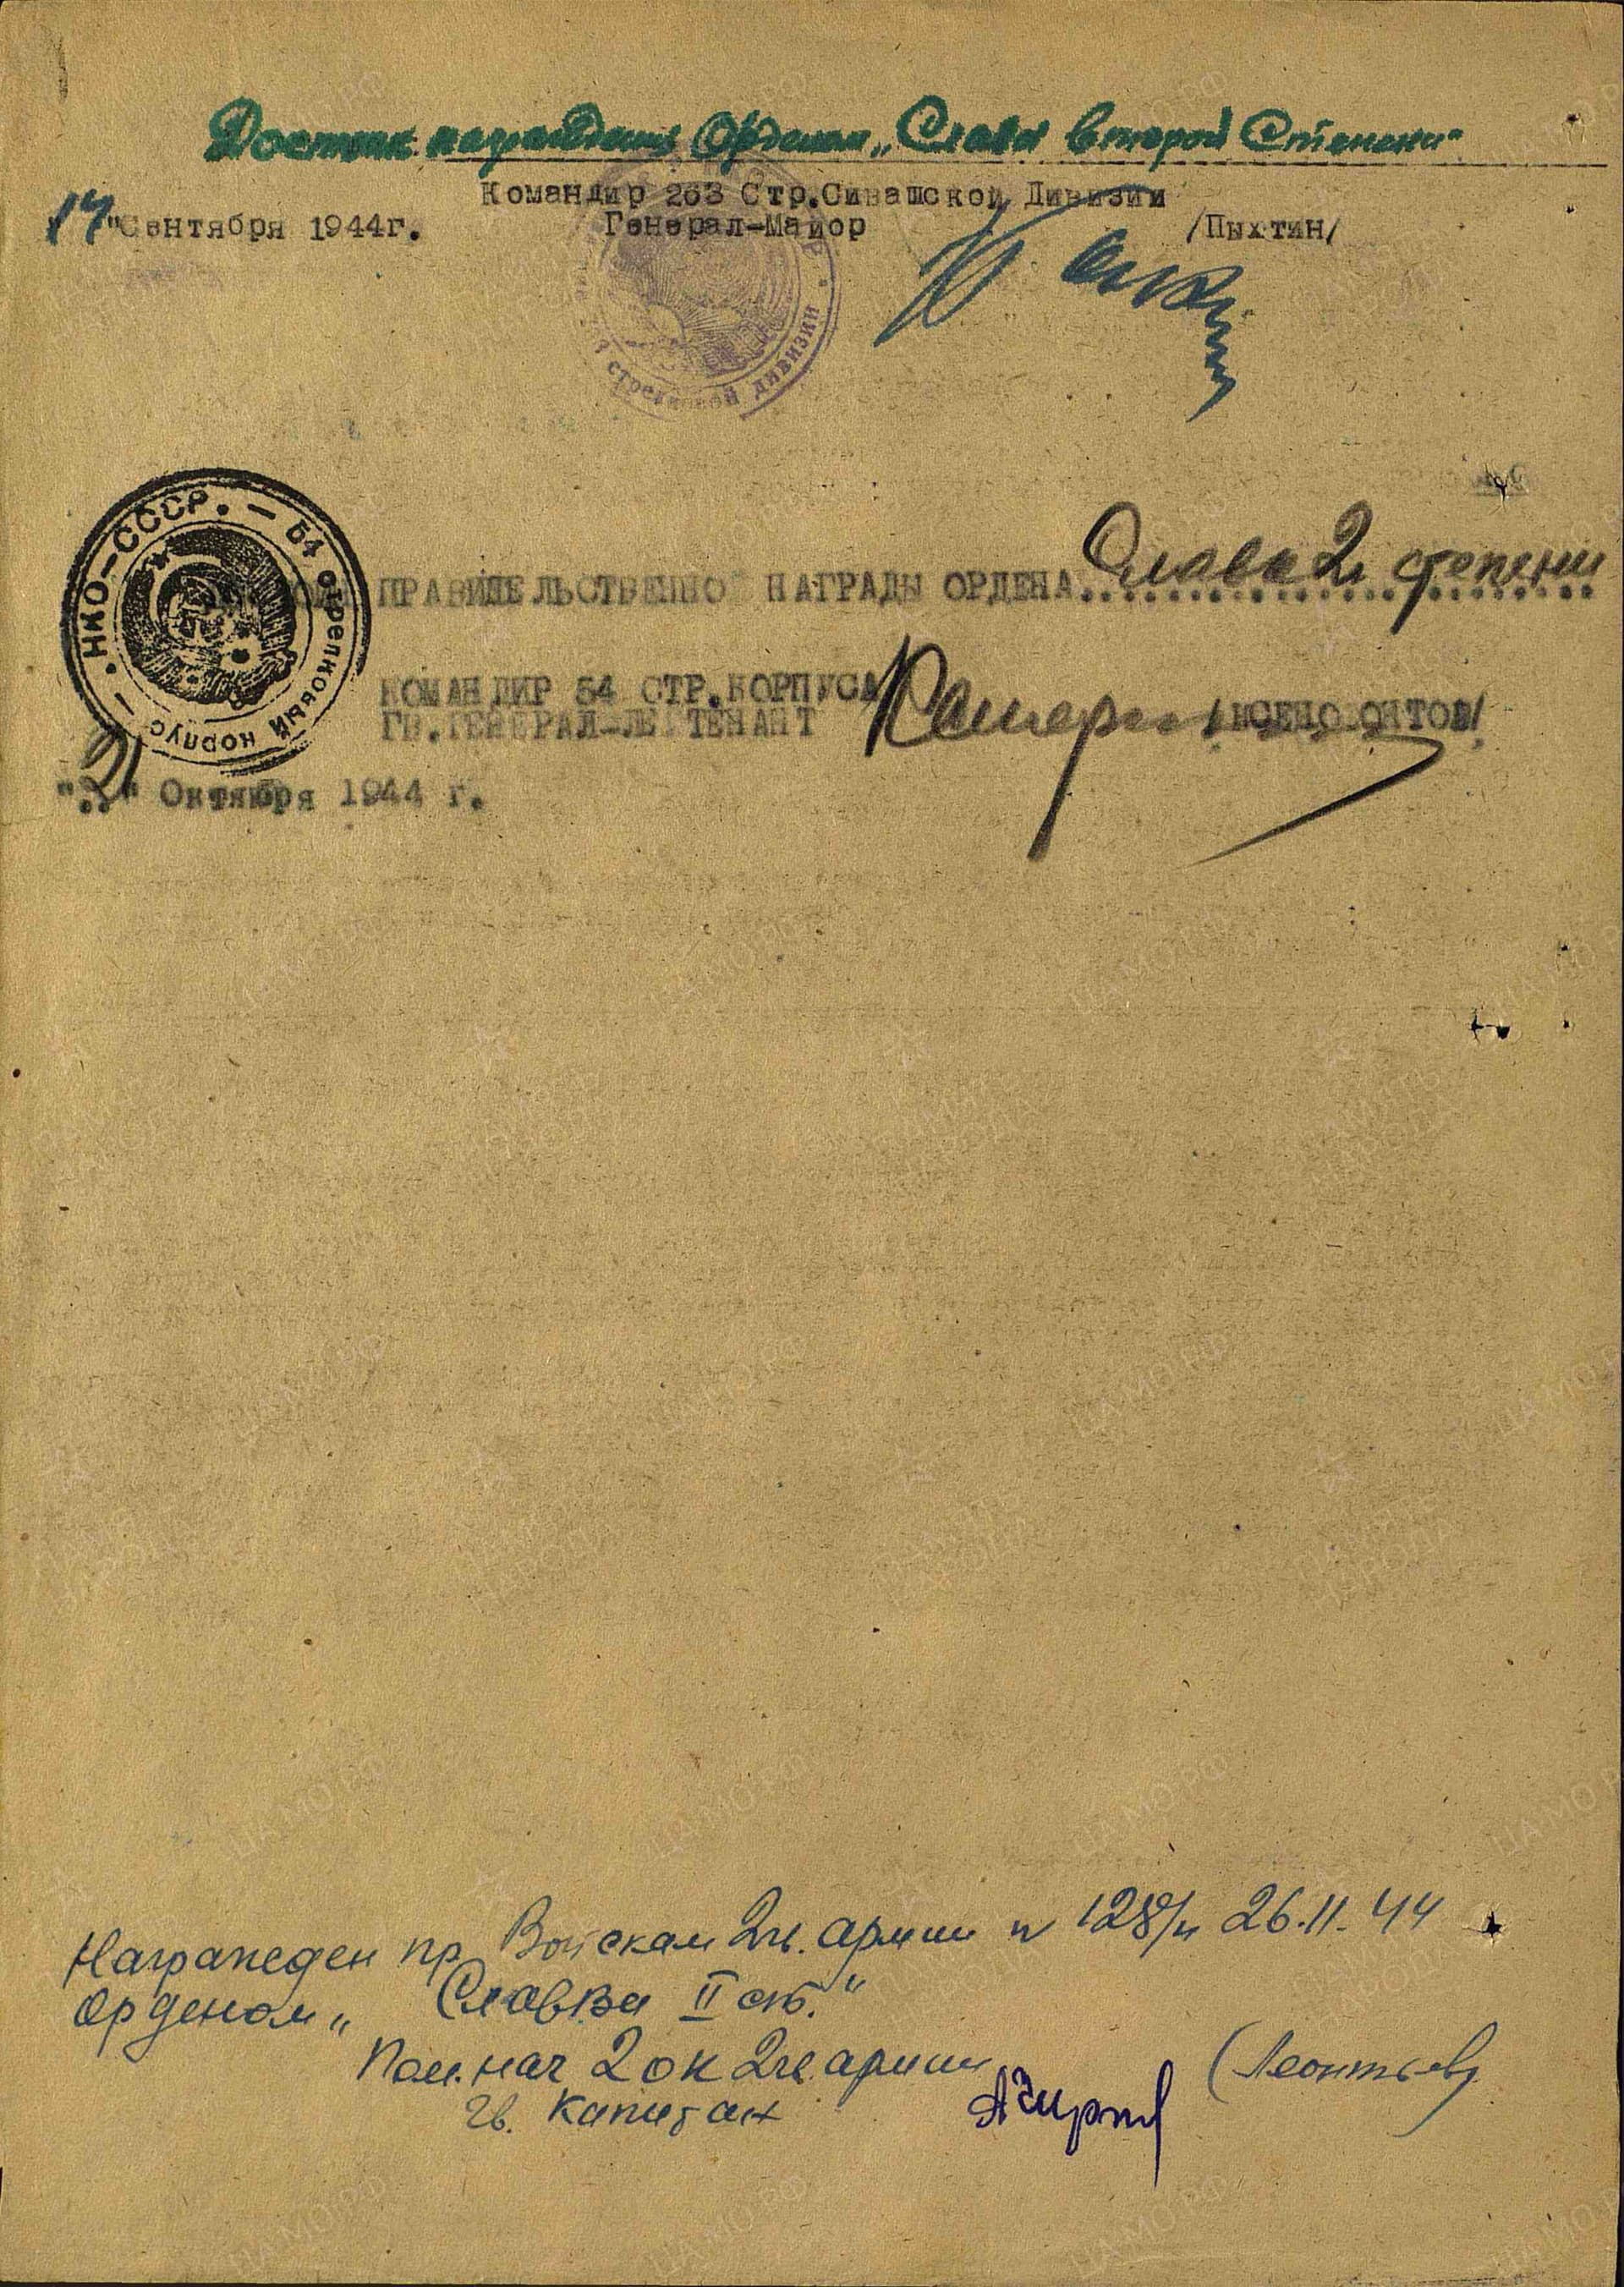 Достоин награждения Орденом „Слава второй Степени"
Командир 263 Стр.Сивашской Дивизии
"17" Сентября 1944г. Генерал-Майор /Пыхтин/
стрелковой дивизии
• НКО-СССР. — 54 стрелковый корпус —
ПРАВИТЕЛЬСТВЕННОЙ НАГРАДЫ ОРДЕНА Слава 2й степени
КОМАНДИР 54 СТР.КОРПУСА
ГВ.ГЕНЕРАЛ-ЛЕЙТЕНАНТ /КСЕНОФОНТОВ/
Октября 1944 г.
Награжеден пр Войскам 2гв. армии № 128/н 26.11.44
Орденом „Славы II ст."
Пом. нач 2 ок 2гв армии
гв. Капитан (Леонтьев)